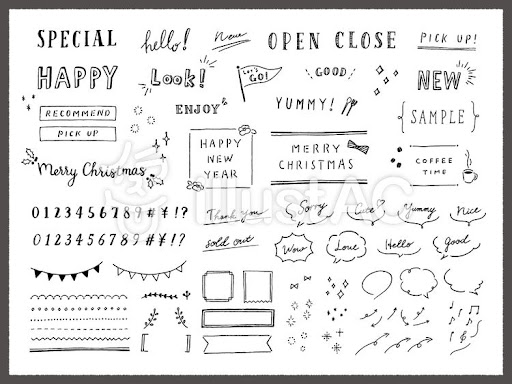 SPECIAL
hello!
New
OPEN CLOSE
PICK UP!
HAPPY
Look!
Let's
GO!
GOOD
NEW
RECOMMEND
PICK UP
ENJOY
YUMMY!
SAMPLE
HAPPY
NEW
YEAR
MERRY
CHRISTMAS
COFFEE
TIME
Merry Christmas
illustAC
0123456789#¥!?
0123456789#¥!?
Thank you
Sorry
Cute♡
Yummy
Nice
sold out
Wow
Love
Hello
good